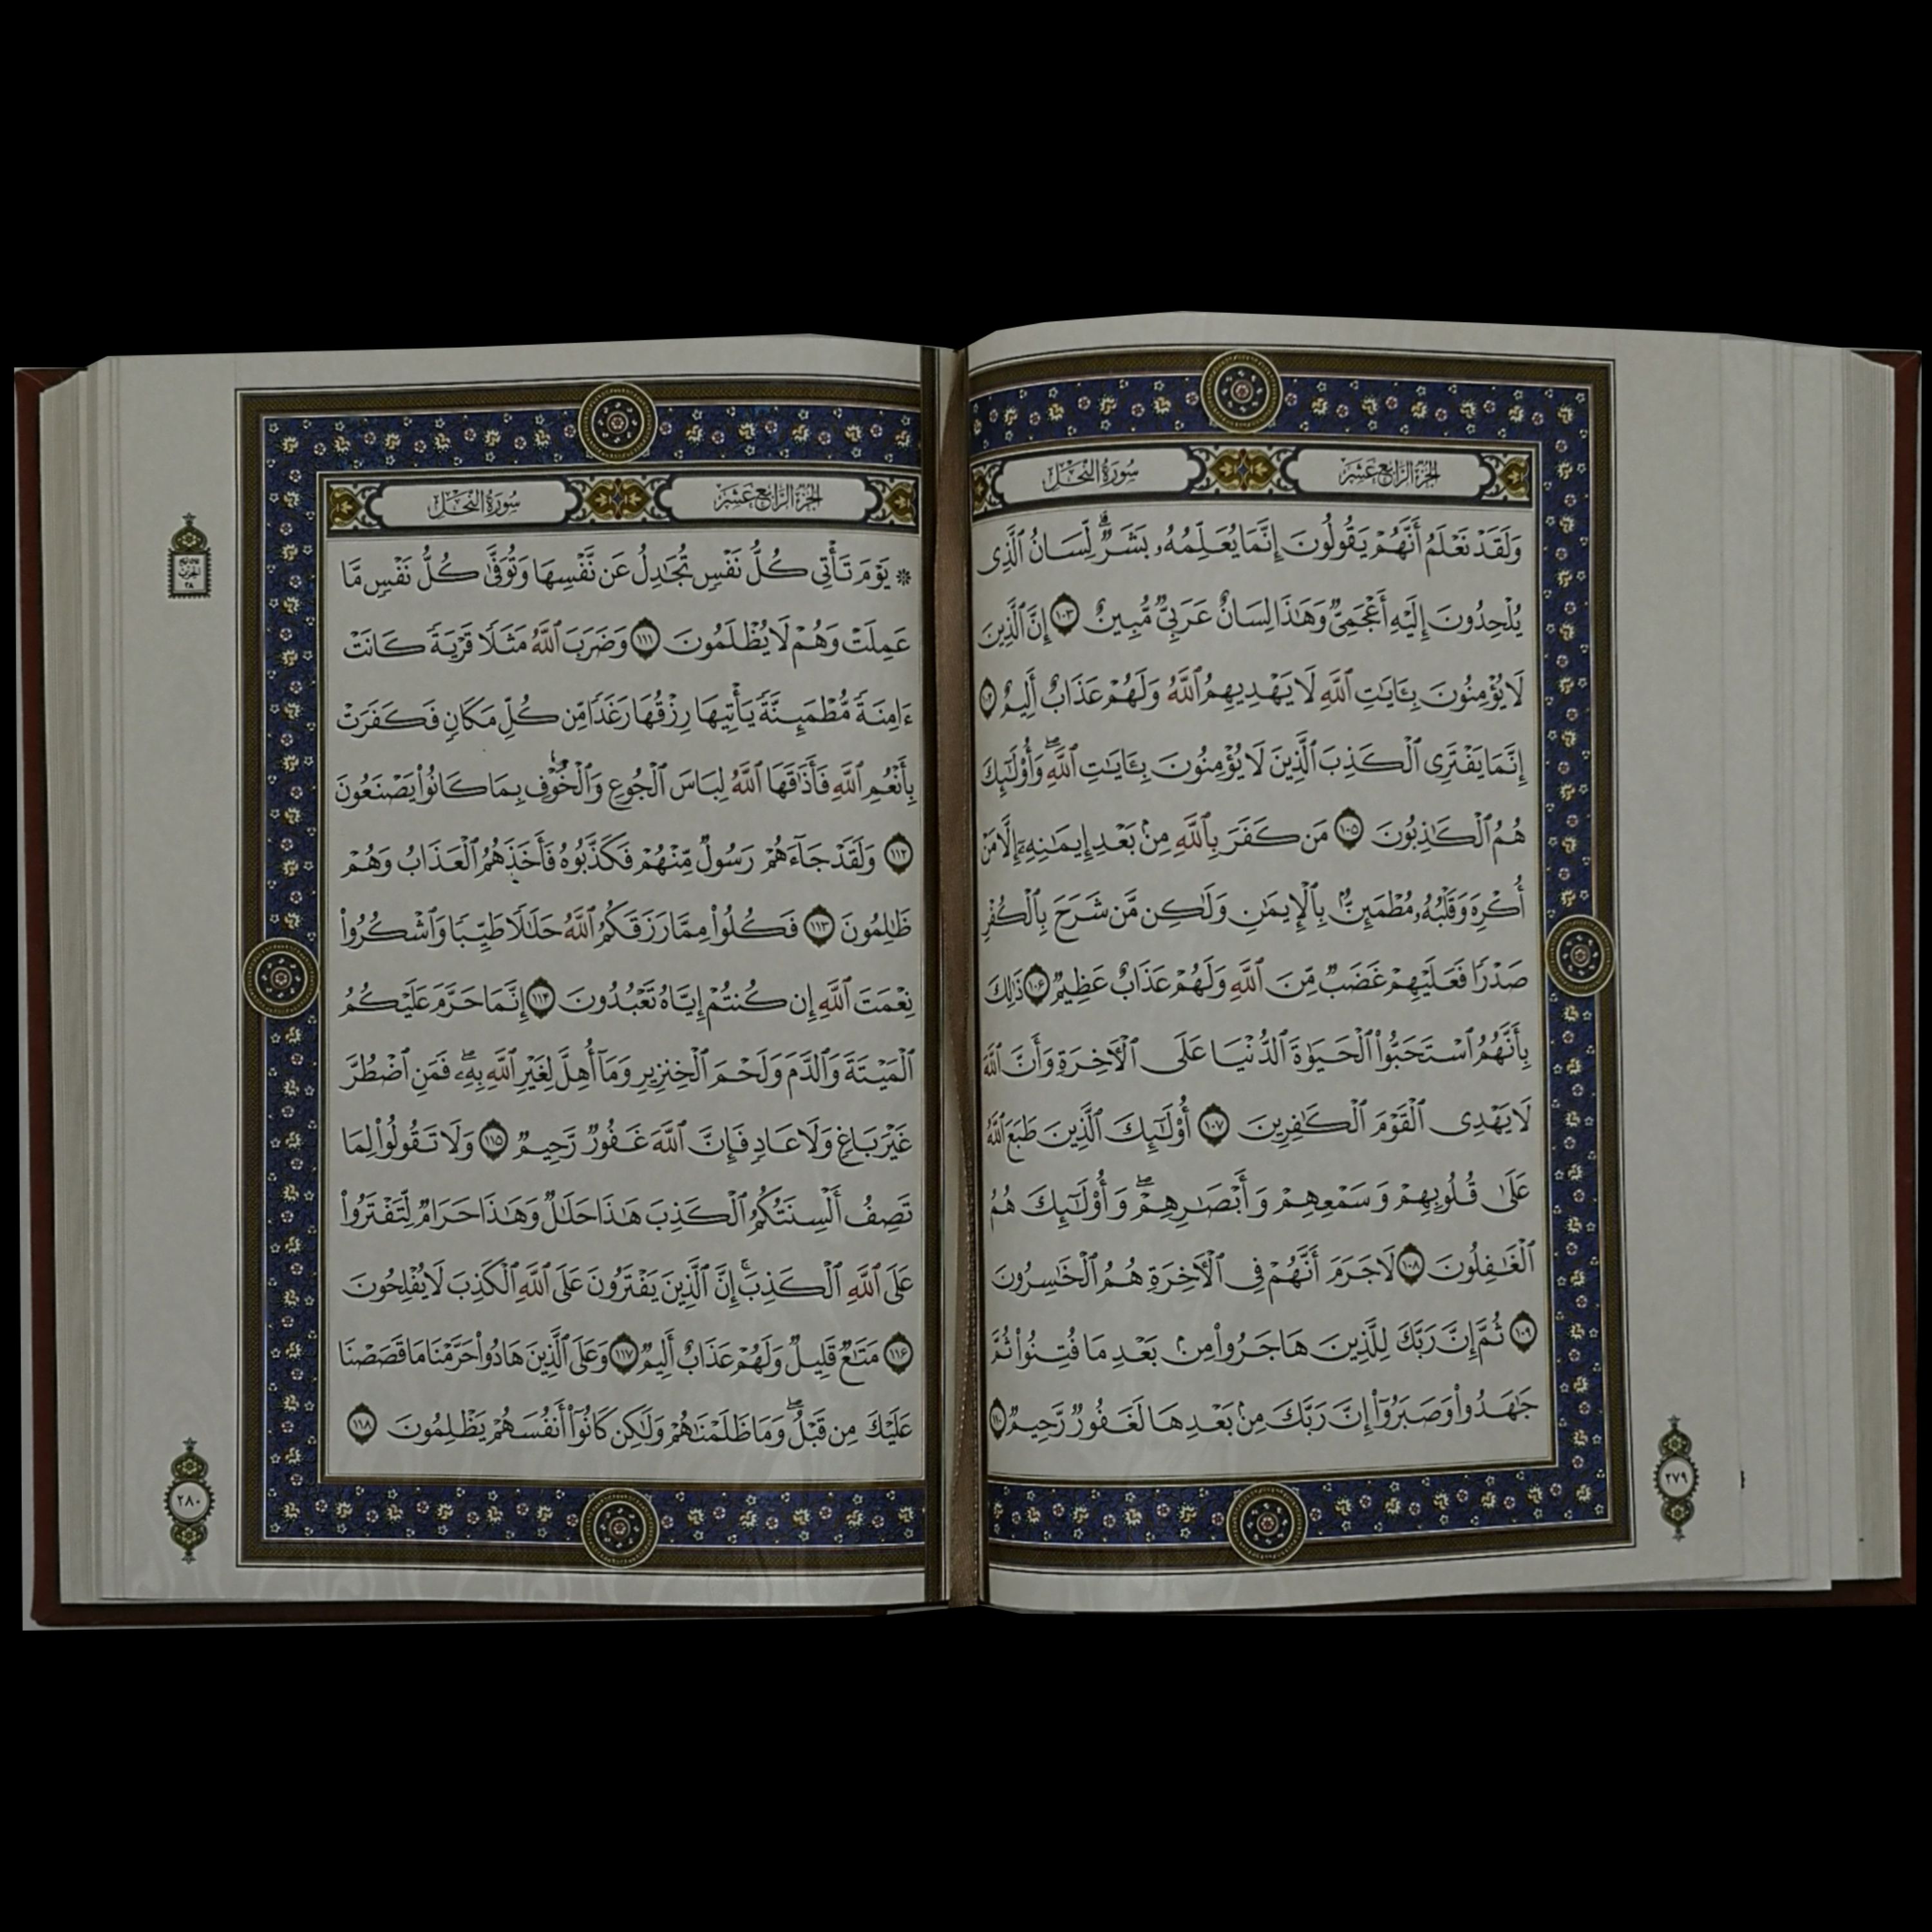 الجزء الرابع عشر
سورة النحل
وَلَقَدْ نَعْلَمُ أَنَّهُمْ يَقُولُونَ إِنَّمَا يُعَلِّمُهُۥ بَشَرٌۗ لِّسَانُ ٱلَّذِى
يُلْحِدُونَ إِلَيْهِ أَعْجَمِىٌّ وَهَٰذَا لِسَانٌ عَرَبِىٌّ مُّبِينٌ ١٠٣ إِنَّ ٱلَّذِينَ
لَا يُؤْمِنُونَ بِـَٔايَٰتِ ٱللَّهِ لَا يَهْدِيهِمُ ٱللَّهُ وَلَهُمْ عَذَابٌ أَلِيمٌ ١٠٤
إِنَّمَا يَفْتَرِى ٱلْكَذِبَ ٱلَّذِينَ لَا يُؤْمِنُونَ بِـَٔايَٰتِ ٱللَّهِۖ وَأُو۟لَٰٓئِكَ
هُمُ ٱلْكَٰذِبُونَ ١٠٥ مَن كَفَرَ بِٱللَّهِ مِنۢ بَعْدِ إِيمَٰنِهِۦٓ إِلَّا مَنْ
أُكْرِهَ وَقَلْبُهُۥ مُطْمَئِنٌّۢ بِٱلْإِيمَٰنِ وَلَٰكِن مَّن شَرَحَ بِٱلْكُفْرِ
صَدْرًا فَعَلَيْهِمْ غَضَبٌ مِّنَ ٱللَّهِ وَلَهُمْ عَذَابٌ عَظِيمٌ ١٠٦ ذَٰلِكَ
بِأَنَّهُمُ ٱسْتَحَبُّوا۟ ٱلْحَيَوٰةَ ٱلدُّنْيَا عَلَى ٱلْأَخِرَةِ وَأَنَّ ٱللَّهَ
لَا يَهْدِى ٱلْقَوْمَ ٱلْكَٰفِرِينَ ١٠٧ أُو۟لَٰٓئِكَ ٱلَّذِينَ طَبَعَ ٱللَّهُ
عَلَىٰ قُلُوبِهِمْ وَسَمْعِهِمْ وَأَبْصَٰرِهِمْۖ وَأُو۟لَٰٓئِكَ هُمُ
ٱلْغَٰفِلُونَ ١٠٨ لَا جَرَمَ أَنَّهُمْ فِى ٱلْأَخِرَةِ هُمُ ٱلْخَٰسِرُونَ
١٠٩ ثُمَّ إِنَّ رَبَّكَ لِلَّذِينَ هَاجَرُوا۟ مِنۢ بَعْدِ مَا فُتِنُوا۟ ثُمَّ
جَٰهَدُوا۟ وَصَبَرُوٓا۟ إِنَّ رَبَّكَ مِنۢ بَعْدِهَا لَغَفُورٌ رَّحِيمٌ ١١٠
٢٧٩
الجزء الرابع عشر
سورة النحل
۞ يَوْمَ تَأْتِى كُلُّ نَفْسٍ تُجَٰدِلُ عَن نَّفْسِهَا وَتُوَفَّىٰ كُلُّ نَفْسٍ مَّا
عَمِلَتْ وَهُمْ لَا يُظْلَمُونَ ١١١ وَضَرَبَ ٱللَّهُ مَثَلًا قَرْيَةً كَانَتْ
ءَامِنَةً مُّطْمَئِنَّةً يَأْتِيهَا رِزْقُهَا رَغَدًا مِّن كُلِّ مَكَانٍ فَكَفَرَتْ
بِأَنْعُمِ ٱللَّهِ فَأَذَٰقَهَا ٱللَّهُ لِبَاسَ ٱلْجُوعِ وَٱلْخَوْفِ بِمَا كَانُوا۟ يَصْنَعُونَ
١١٢ وَلَقَدْ جَآءَهُمْ رَسُولٌ مِّنْهُمْ فَكَذَّبُوهُ فَأَخَذَهُمُ ٱلْعَذَابُ وَهُمْ
ظَٰلِمُونَ ١١٣ فَكُلُوا۟ مِمَّا رَزَقَكُمُ ٱللَّهُ حَلَٰلًا طَيِّبًا وَٱشْكُرُوا۟
نِعْمَتَ ٱللَّهِ إِن كُنتُمْ إِيَّاهُ تَعْبُدُونَ ١١٤ إِنَّمَا حَرَّمَ عَلَيْكُمُ
ٱلْمَيْتَةَ وَٱلدَّمَ وَلَحْمَ ٱلْخِنزِيرِ وَمَآ أُهِلَّ لِغَيْرِ ٱللَّهِ بِهِۦۖ فَمَنِ ٱضْطُرَّ
غَيْرَ بَاغٍ وَلَا عَادٍ فَإِنَّ ٱللَّهَ غَفُورٌ رَّحِيمٌ ١١٥ وَلَا تَقُولُوا۟ لِمَا
تَصِفُ أَلْسِنَتُكُمُ ٱلْكَذِبَ هَٰذَا حَلَٰلٌ وَهَٰذَا حَرَامٌ لِّتَفْتَرُوا۟
عَلَى ٱللَّهِ ٱلْكَذِبَۚ إِنَّ ٱلَّذِينَ يَفْتَرُونَ عَلَى ٱللَّهِ ٱلْكَذِبَ لَا يُفْلِحُونَ
١١٦ مَتَٰعٌ قَلِيلٌ وَلَهُمْ عَذَابٌ أَلِيمٌ ١١٧ وَعَلَى ٱلَّذِينَ هَادُوا۟ حَرَّمْنَا مَا قَصَصْنَا
عَلَيْكَ مِن قَبْلُۖ وَمَا ظَلَمْنَٰهُمْ وَلَٰكِن كَانُوٓا۟ أَنفُسَهُمْ يَظْلِمُونَ ١١٨
٢٨٠